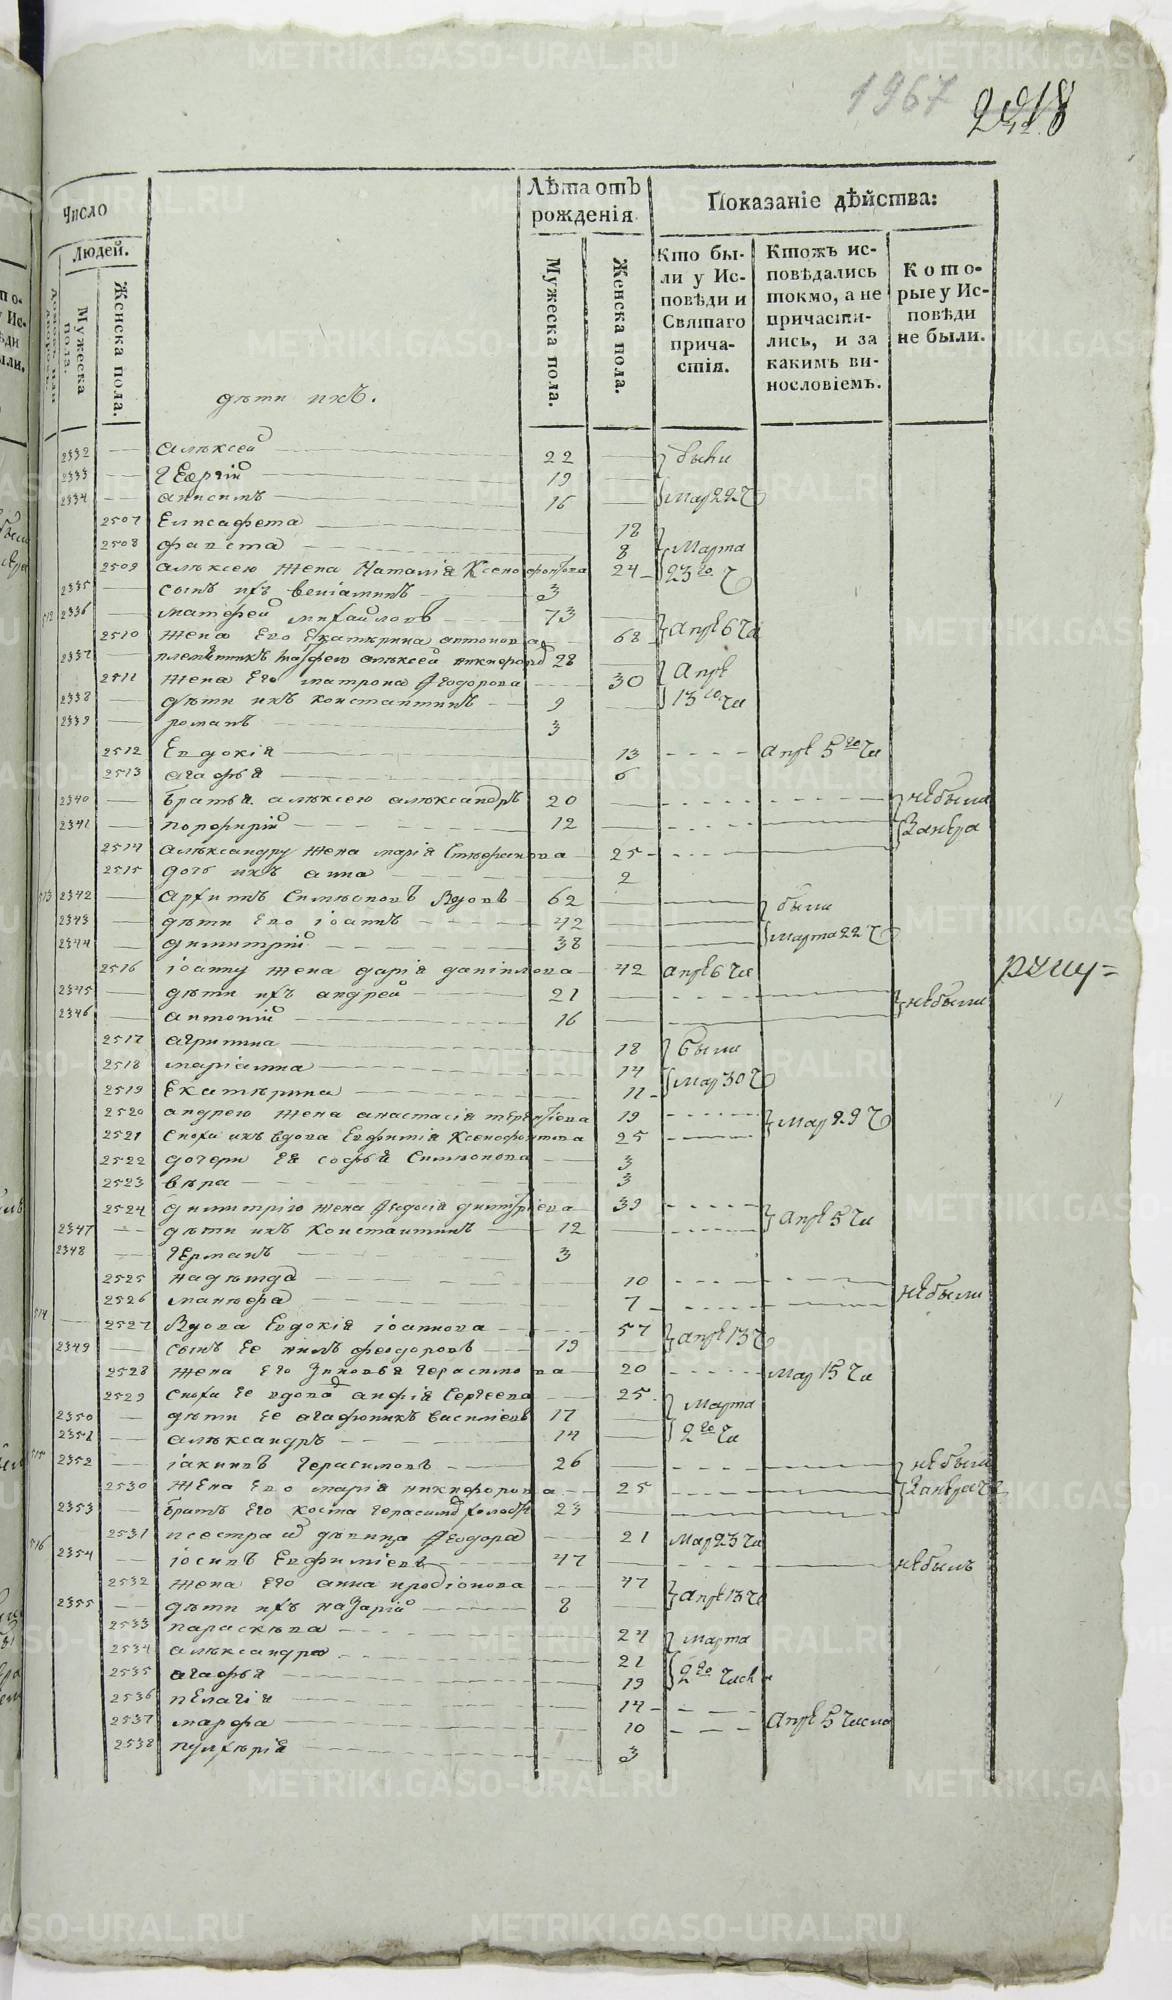 1967 2218
Число
Людей.
Мужеска пола.
Женска пола.
Лѣта отъ рожденія
Мужеска пола.
Женска пола.
Показаніе дѣйства:
Кто были у Исповѣди и Святаго причастія.
Ктожъ исповѣдались токмо, а не причастились, и за какимъ винословіемъ.
Которые у Исповѣди не были.
дѣти ихъ.
2332 алѣксей 22 были
2333 георгій 19
2334 анисимъ 16 Мар 22 ч
2507 Елисафета 18
2508 фавста 8 Марта
2509 алѣксею жена Наталія Ксенофонтова 24 23го ч
2335 сынъ ихъ веніаминъ 3
512 2336 матфей михайловъ 73
2510 жена Его Екатирина антонова 68 апрѣ 6 чи
2337 племянникъ алѣксей никифоровъ 28
2511 жена Его матрона Феодорова 30 Апрѣ
2338 дѣти ихъ константинъ 9 13го чи
2339 романъ 3
2512 Евдокія 13 апрѣ 5го чи
2513 агафья 6
2340 братья алѣксею алѣксандръ 20 небыли
2341 порфирій 12
2514 алѣксандру жена марія Стѣфанова 25
2515 дочь ихъ анна 2
513 2342 архипъ Симѣоновъ Вдовъ 62 были
2343 дѣти Его іоаннъ 42
2344 димитрій 38 Марта 22 ч
2516 іоанну жена дарія даніилова 42 апрѣ 6 чи
рицу=
2345 дѣти ихъ андрей 21 небыли
2346 антоній 16
2517 агрипина 18 были
2518 маріамна 14
2519 Екатѣрина 11 Мар 30 ч
2520 андрею жена анастасія терентіева 19
2521 Сноха ихъ вдова Евфимія Ксенофонтова 25 Мар 29 ч
2522 дочери Ея софья Симѣонова 3
2523 вѣра 3
2524 димитрію жена Федосія дмитріева 39
2347 дѣти ихъ Константинъ 12 апрѣ 5 чи
2348 германъ 3
2525 надѣжда 10
2526 манѣфа 7 небыли
514 2527 Вдова Евдокія іоаннова 57
2349 сынъ Ее нилъ феодоровъ 19 апрѣ 13 ч
2528 жена Его Зиновья герасимова 20 Мар 15 чи
2529 Сноха Ее вдова анфія Сергеева 25 Марта
2350 дѣти Ее агафоникъ василіевъ 17
2351 алѣксандръ 14 2го чи
515 2352 іакинъ герасимовъ 26 небыли
2530 жена Его марія никифорова 25
2353 братъ Его косма герасимовъ холостъ 23
2531 и сестра дѣвица Феодора 21 Мар 23 чи
516 2354 іосифъ Евфиміевъ 47 небылъ
2532 жена Его анна иродіонова 47
2355 дѣти ихъ назарій 8 апрѣ 13 ч
2533 параскѣва 24 Марта
2534 алѣксандра 21
2535 агафья 19 2го числ
2536 пелагія 14
2537 марфа 10 Апрѣ 5 числа
2538 пулхѣрія 3